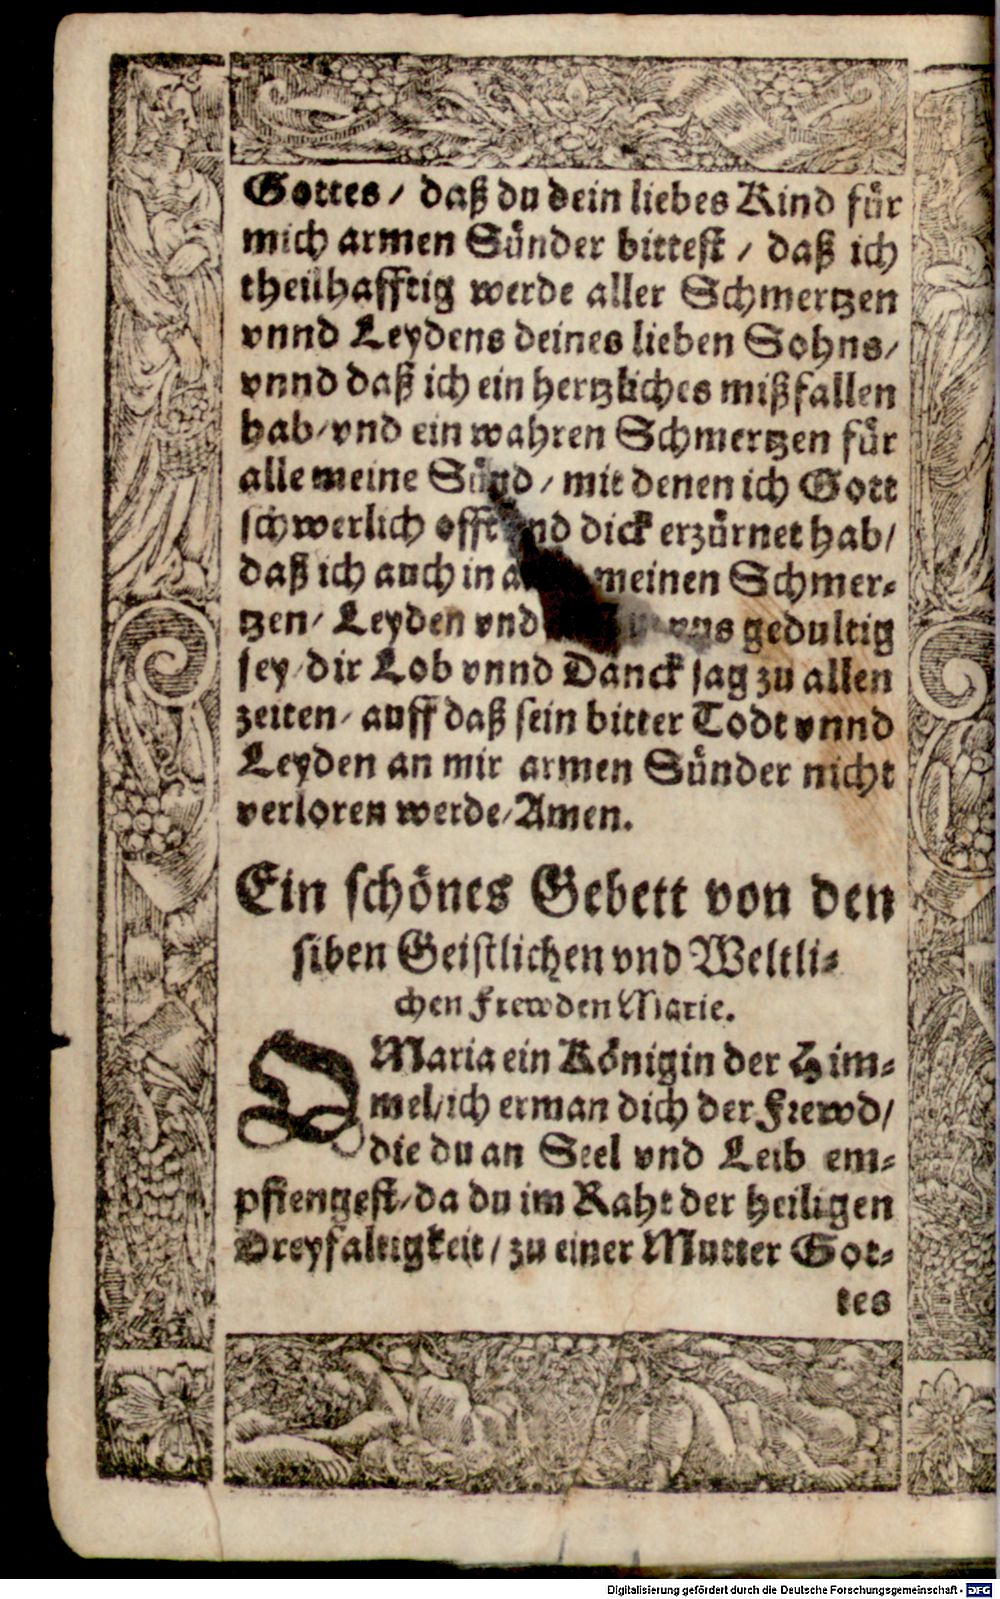 Gottes / daß du dein liebes Kind für
mich armen Sünder bittest / daß ich
theilhafftig werde aller Schmertzen
vnnd Leydens deines lieben Sohns /
vnnd daß ich ein hertzliches mißfallen
hab / vnd ein wahren Schmertzen für
alle meine Sünd / mit denen ich Gott
schwerlich offt vnd dick erzürnet hab /
daß ich auch in meinen Schmer⸗
tzen / Leyden vnd gedultig
sey / dir Lob vnnd Danck sag zu allen
zeiten / auff daß sein bitter Todt vnnd
Leyden an mir armen Sünder nicht
verloren werde / Amen.
Ein schönes Gebett von den
siben Geistlichen vnd Weltli⸗
chen Frewden Marie.
O Maria ein Königin der Him⸗
mel / ich erman dich der Frewd /
die du an Seel vnd Leib em⸗
pfiengest / da du im Raht der heiligen
Dreyfaltigkeit / zu einer Mutter Got⸗
tes
Digitalisierung gefördert durch die Deutsche Forschungsgemeinschaft - DFG